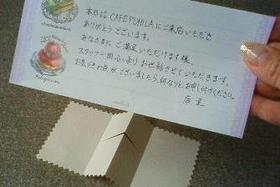 本日は CAFE PUHILA にご来店いただき
ありがとうございます。
みなさまに ご満足いただけます様、
スタッフ一同 心より お世話させていただきます。
お気づきの点がございましたら、何なりと お申し付けください。
店主